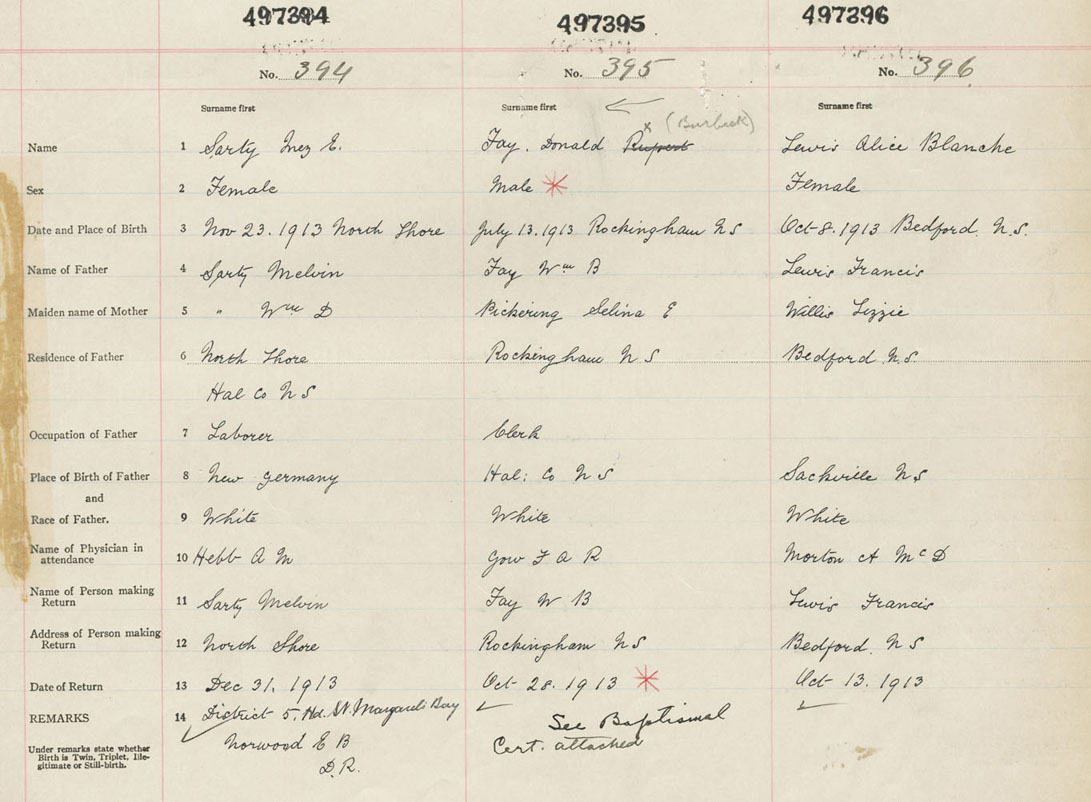 497394 497395 497396
No. 394 No. 395 No. 396
Surname first Surname first Surname first
Name 1 Sarty Inez E. Fay. Donald Rupert x (Burbeck) Lewis Alice Blanche
Sex 2 Female Male * Female
Date and Place of Birth 3 Nov 23. 1913 North Shore July 13. 1913 Rockingham N S Oct 8. 1913 Bedford. N.S.
Name of Father 4 Sarty Melvin Fay Wm B Lewis Francis
Maiden name of Mother 5 " Wm D Pickering Selina E Willis Lizzie
Residence of Father 6 North Shore Rockingham N S Bedford N.S.
Hal Co N S
Occupation of Father 7 Laborer Clerk
Place of Birth of Father 8 New Germany Hal: Co N S Sackville N S
and
Race of Father. 9 White White White
Name of Physician in
attendance 10 Hebb A M Gow F A R Morton A McD
Name of Person making
Return 11 Sarty Melvin Fay W B Lewis Francis
Address of Person making
Return 12 North Shore Rockingham N S Bedford. N S
Date of Return 13 Dec 31. 1913 Oct 28. 1913 * Oct 13. 1913
REMARKS 14 District 5, Hd. St. Margarets Bay See Baptismal
Under remarks state whether Norwood E B Cert. attached
Birth is Twin, Triplet, Ille-
gitimate or Still-birth. D.R.